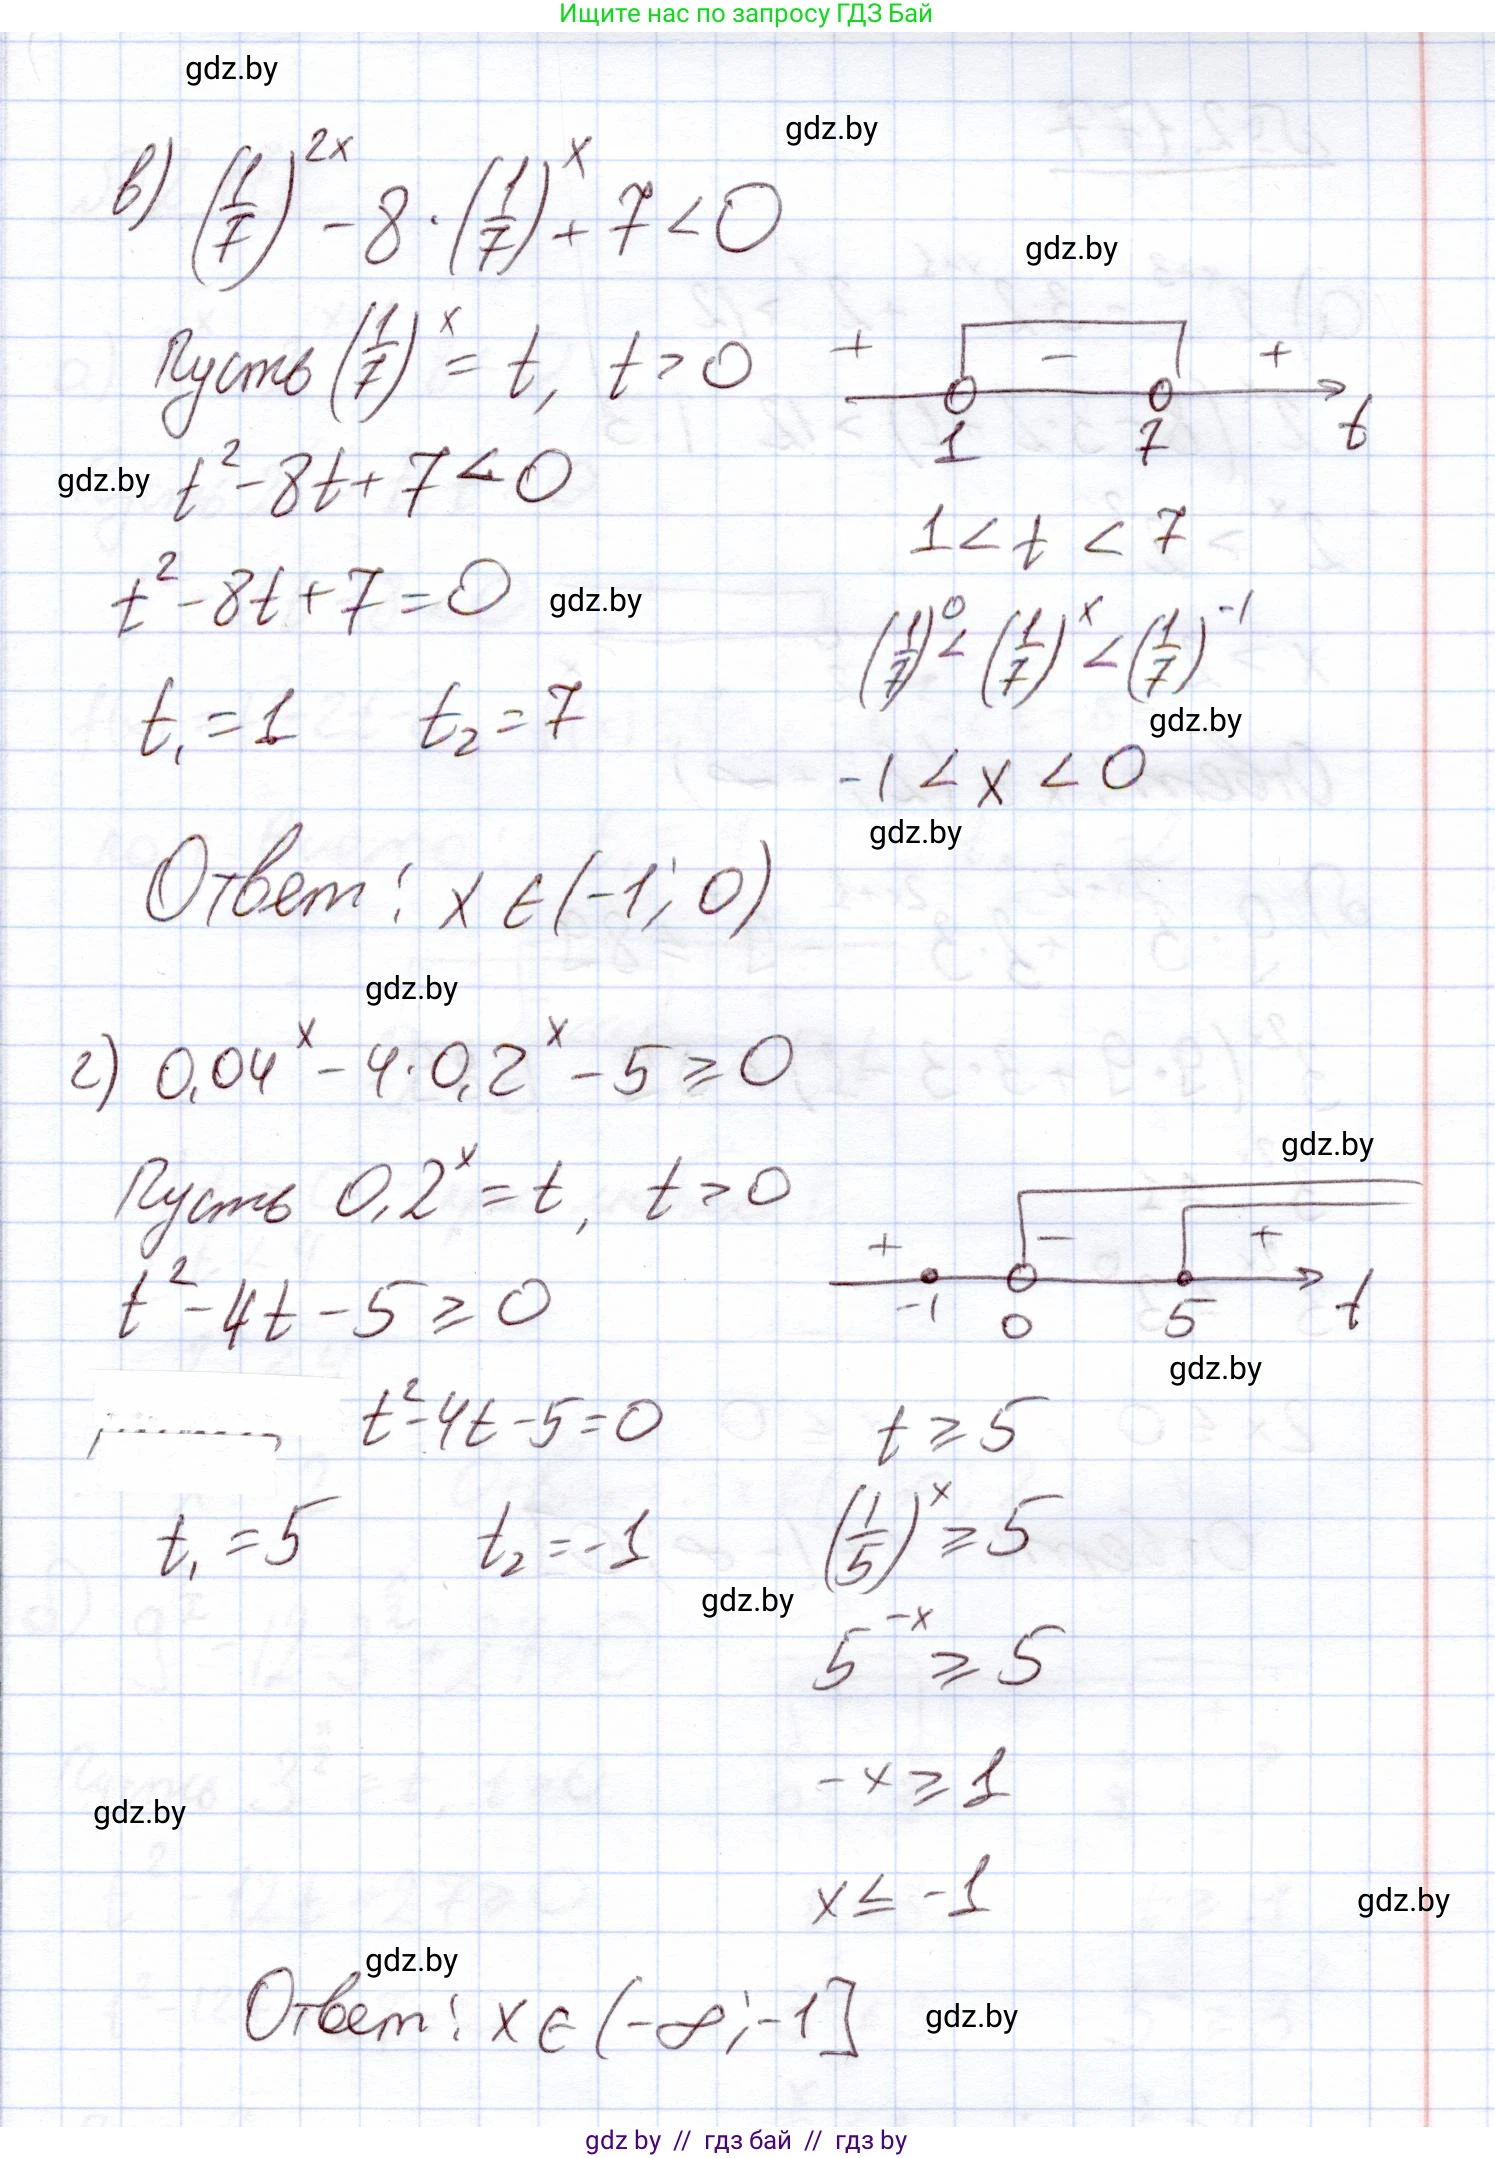 Ищите нас по запросу ГДЗ Бай
gdz.by
gdz.by
в) (1/7)^2x - 8 · (1/7)^x + 7 < 0
gdz.by
Пусть (1/7)^x = t, t > 0
+ - +
1 7 t
gdz.by
t² - 8t + 7 < 0
1 < t < 7
t² - 8t + 7 = 0
gdz.by
(1/7)^0 < (1/7)^x < (1/7)^-1
t₁ = 1 t₂ = 7
gdz.by
-1 < x < 0
gdz.by
Ответ: x ∈ (-1; 0)
gdz.by
г) 0,04^x - 4 · 0,2^x - 5 ≥ 0
gdz.by
Пусть 0,2^x = t, t > 0
+ - +
-1 0 5 t
t² - 4t - 5 ≥ 0
gdz.by
t² - 4t - 5 = 0
t ≥ 5
t₁ = 5 t₂ = -1
(1/5)^x ≥ 5
gdz.by
5^-x ≥ 5
-x ≥ 1
gdz.by
x ≤ -1
gdz.by
gdz.by
Ответ: x ∈ (-∞; -1]
gdz.by
gdz by // гдз бай // гдз by